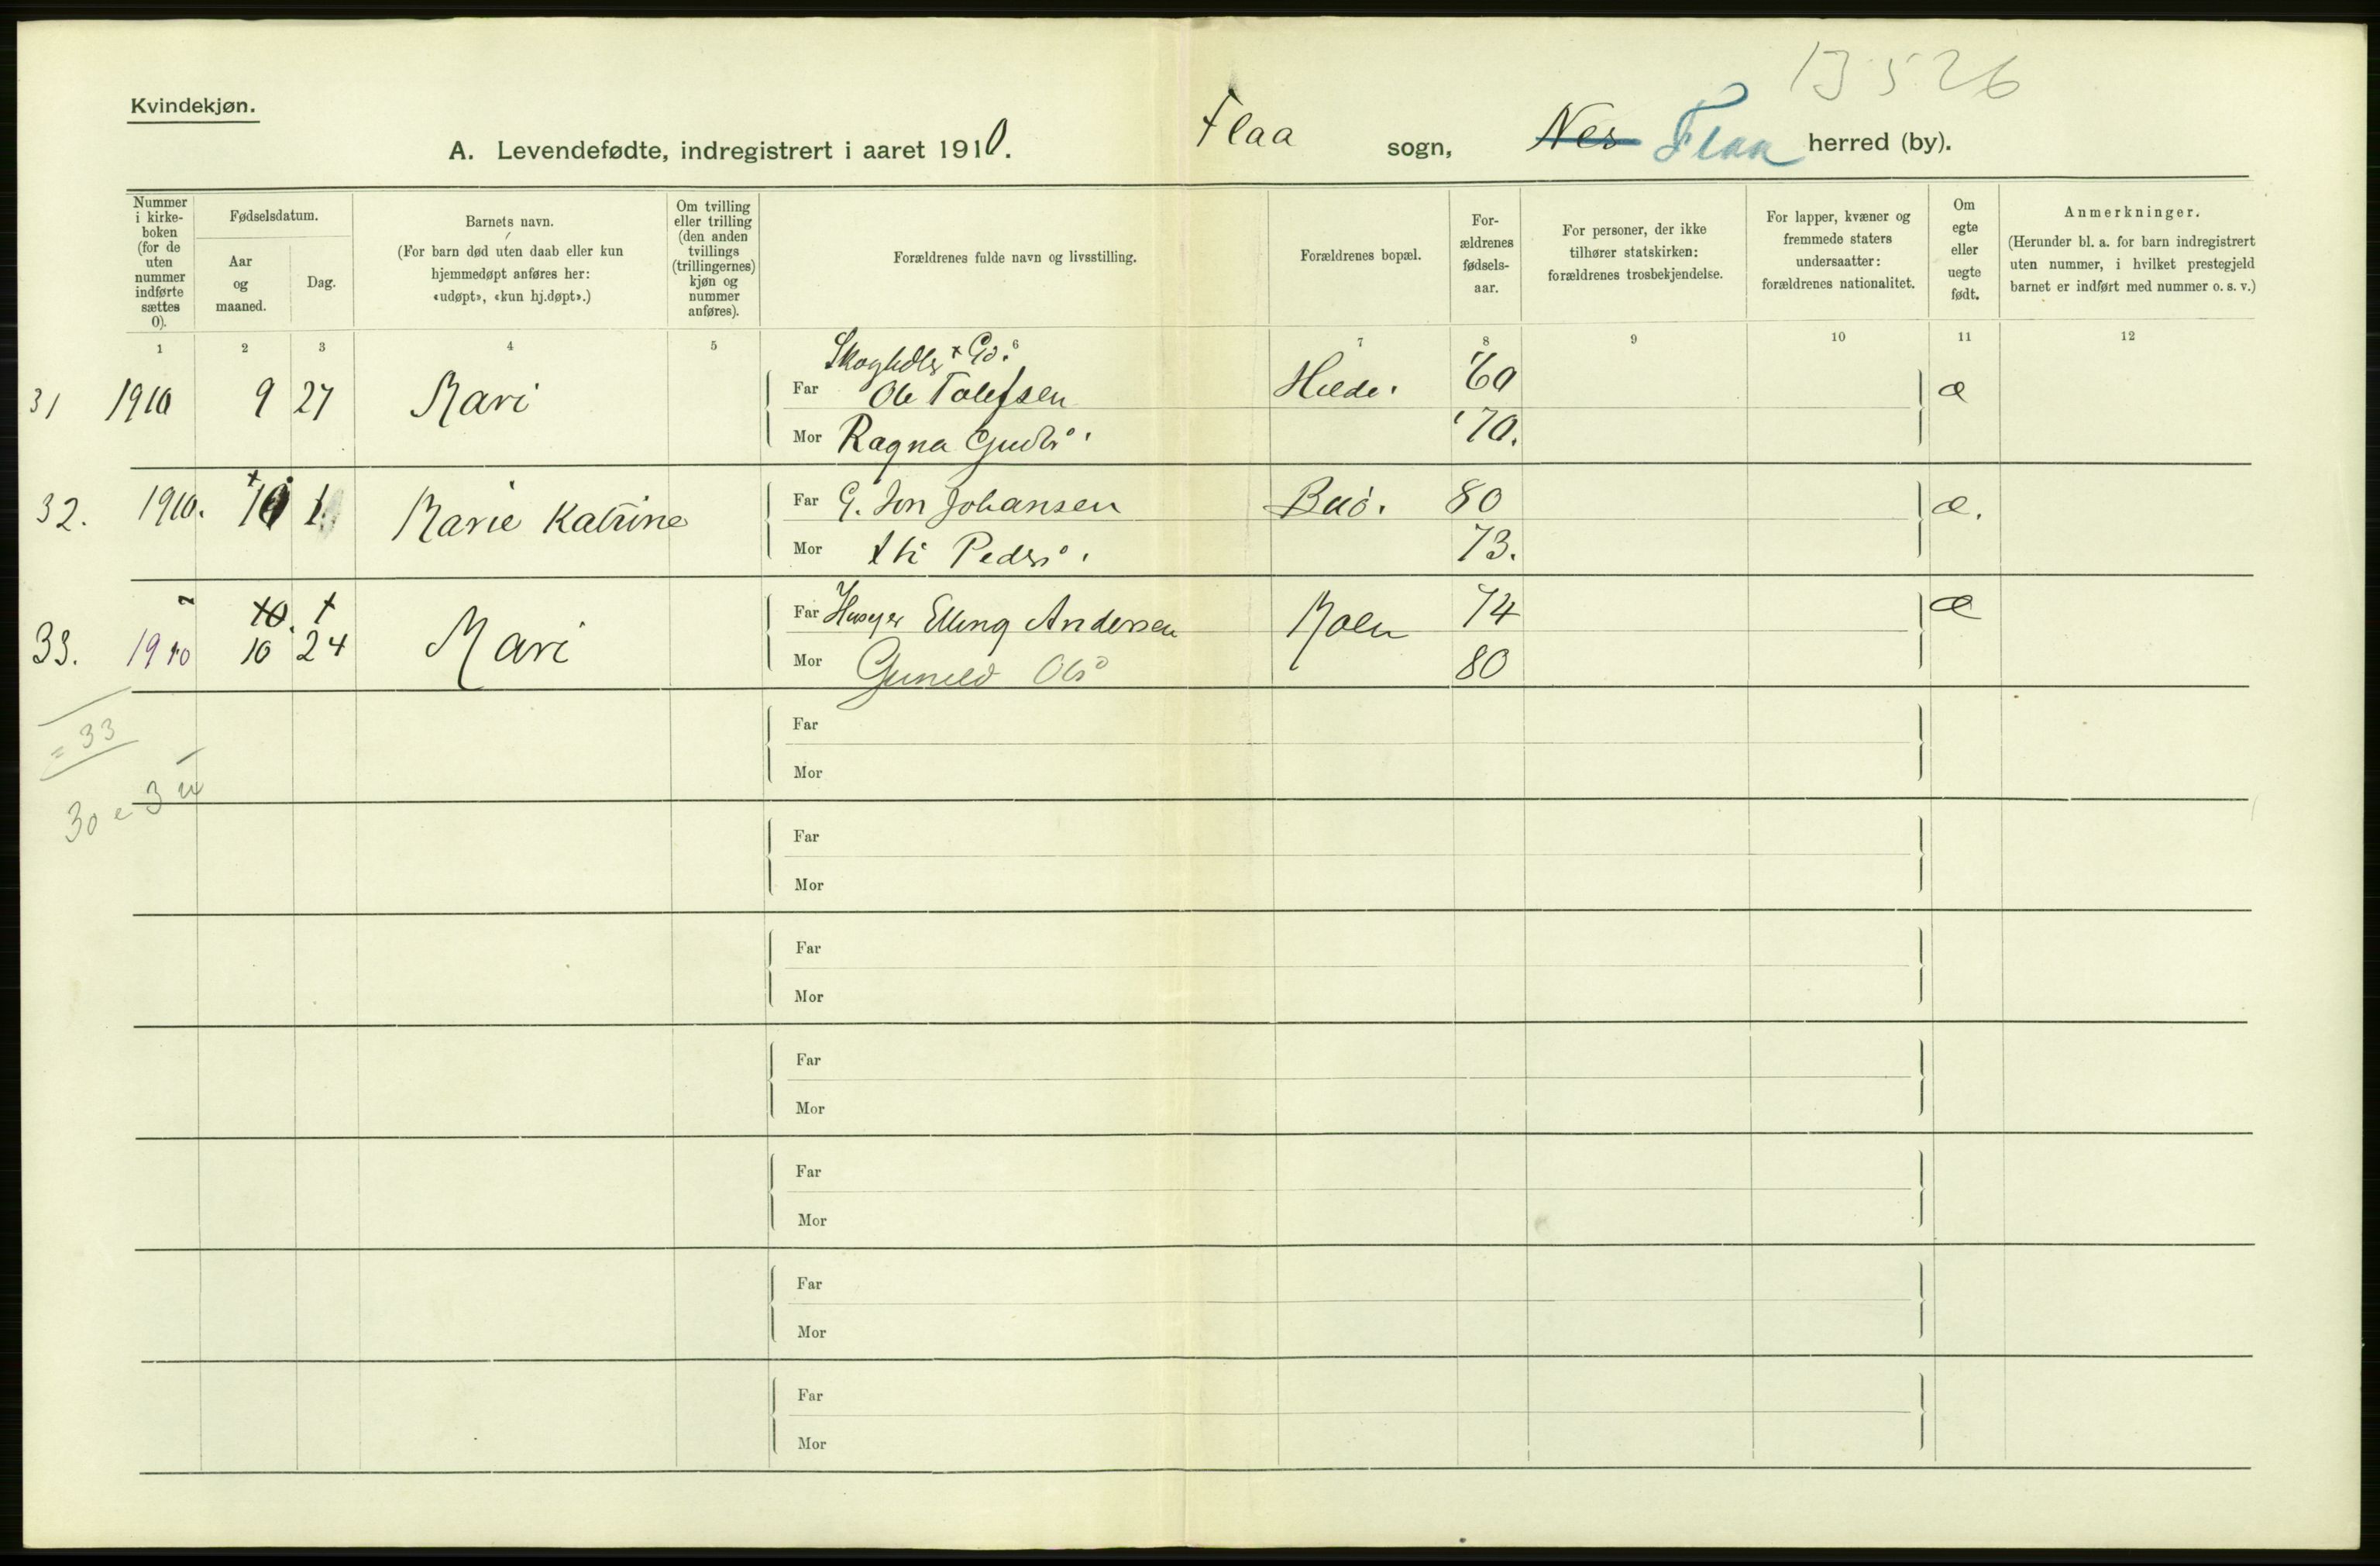 13526
Kvindekjøn.
A. Levendefødte, indregistrert i aaret 1910. Flaa sogn, Nes Flaa herred (by).
Nummer i kirkeboken (for de uten nummer indførte sættes 0).
Fødselsdatum.
Aar og maaned.
Dag.
Barnets navn.
(For barn død uten daab eller kun hjemmedøpt anføres her: «udøpt», «kun hj.døpt».)
Om tvilling eller trilling (den anden tvillings (trillingernes) kjøn og nummer anføres).
Forældrenes fulde navn og livsstilling.
Forældrenes bopæl.
Forældrenes fødselsaar.
For personer, der ikke tilhører statskirken: forældrenes trosbekjendelse.
For lapper, kvæner og fremmede staters undersaatter: forældrenes nationalitet.
Om egte eller uegte født.
Anmerkninger.
(Herunder bl. a. for barn indregistrert uten nummer, i hvilket prestegjeld barnet er indført med nummer o. s. v.)
1 2 3 4 5 6 7 8 9 10 11 12
31 1910 9 27 Mari Far Ole Tolefsen Hilde. '60 æ
Mor Ragna '70.
32. 1910. 10 1. Marie Katrine Far G. Jon Johansen 80 æ.
Mor Peders 73.
33. 1910 10 24 Mari Far Elling Andersen Moen 74 æ
Mor Gunild Ols 80
= 33
30 e 3 u
Far
Mor
Far
Mor
Far
Mor
Far
Mor
Far
Mor
Far
Mor
Far
Mor